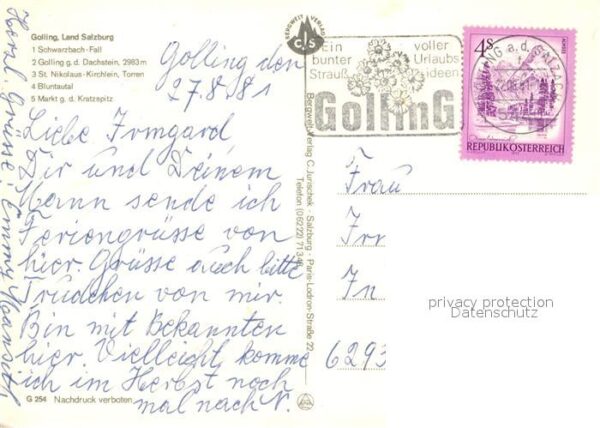 Golling, Land Salzburg
1 Schwarzbach-Fall
2 Golling g. d. Dachstein, 2983 m
3 St. Nikolaus-Kirchlein, Torren
4 Bluntautal
5 Markt g. d. Kratzspitz
Golling den
27.8.81
Liebe Irmgard
Dir und Deinem
Mann sende ich
Feriengrüsse von
hier. Grüsse auch bitte
Trudchen von mir.
Bin mit Bekannten
hier. Vielleicht komme
ich im Herbst noch
mal nach N.
Herzl. Grüsse, Emmy
G 254 Nachdruck verboten
BERGWELT VERLAG
CJS
Bergwelt-Verlag C. Jurischek - Salzburg - Paris-Lodron-Straße 22
Telefon (06222) 71
Ein voller
bunter Urlaubs
Strauß ideen
GollinG
GOLLING a. d. SALZAC
4S
REPUBLIK ÖSTERREICH
Frau
Irr
In
6293
privacy protection
Datenschutz